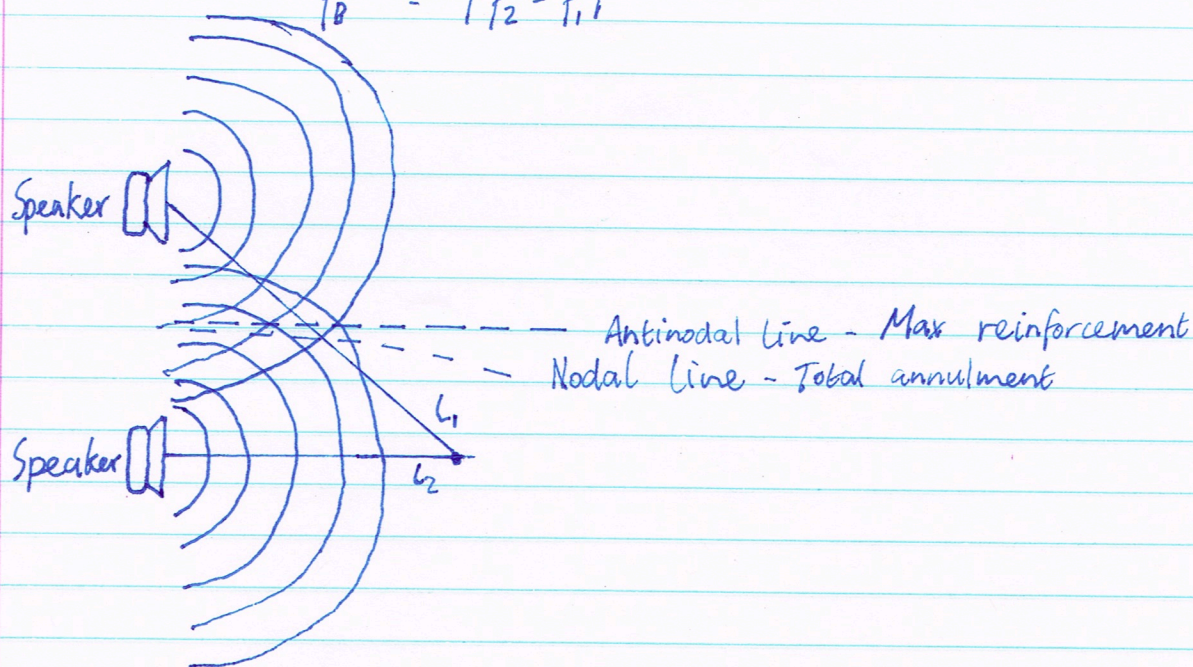 fB = |f2 - f1|
Speaker
Antinodal line - Max reinforcement
Nodal line - Total annulment
L1
Speaker
L2